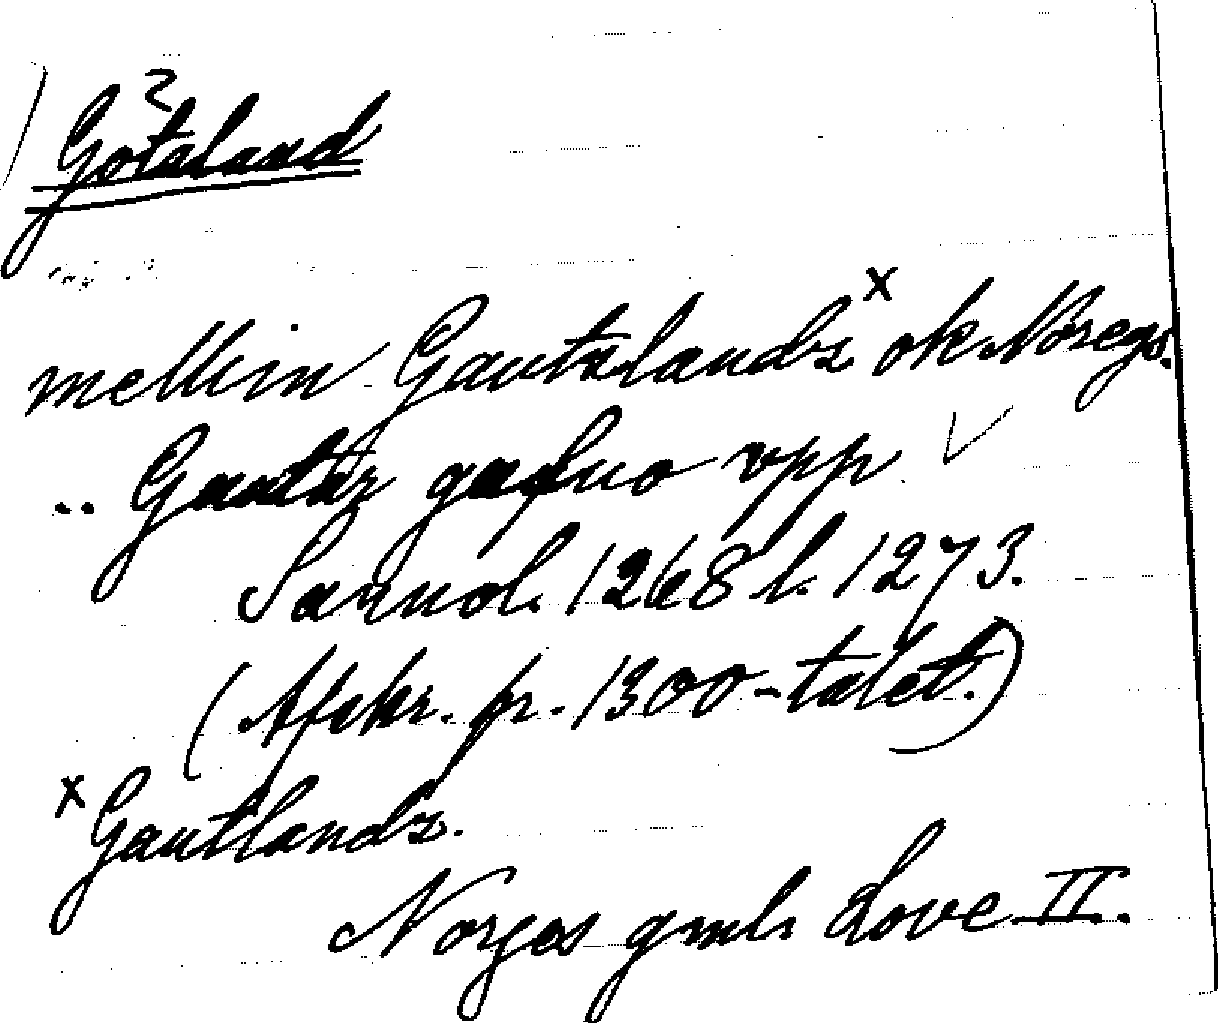 Götaland
mellin Gautalandz x ok Noregs.
.. Gautar upp
Sannol. 1268 l. 1273.
(Afskr. fr. 1300-talet.)
x Gautlandz.
Norges gml. Love II.